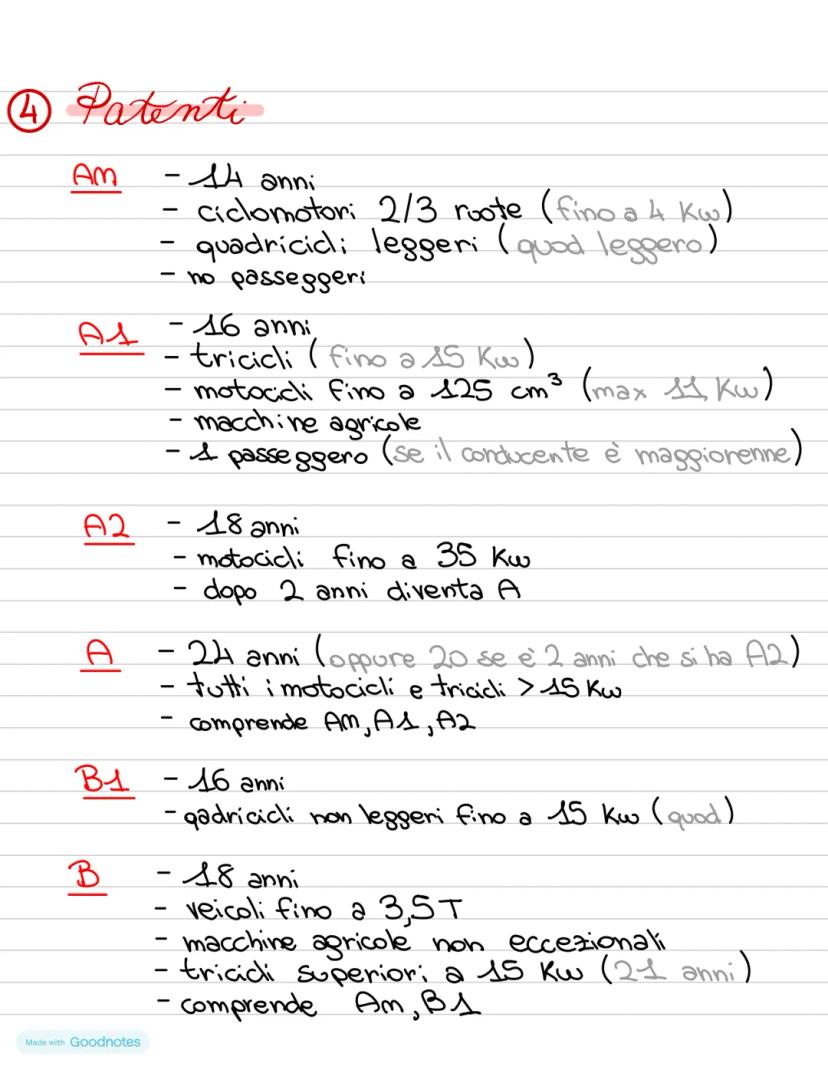 ④ Patenti
AM - 14 anni
- ciclomotori 2/3 ruote (fino a 4 Kw)
- quadricicli leggeri (quod leggero)
- no passeggeri
A1 - 16 anni
- tricicli (fino a 15 Kw)
- motocicli fino a 125 cm³ (max 11 Kw)
- macchine agricole
- 1 passeggero (se il conducente è maggiorenne)
A2 - 18 anni
- motocicli fino a 35 Kw
- dopo 2 anni diventa A
A - 24 anni (oppure 20 se è 2 anni che si ha A2)
- tutti i motocicli e tricicli > 15 Kw
- comprende AM, A1, A2
B1 - 16 anni
- qadricicli non leggeri fino a 15 Kw (quod)
B - 18 anni
- veicoli fino a 3,5T
- macchine agricole non eccezionali
- tricicli superiori a 15 Kw (21 anni)
- comprende Am, B1
Made with Goodnotes